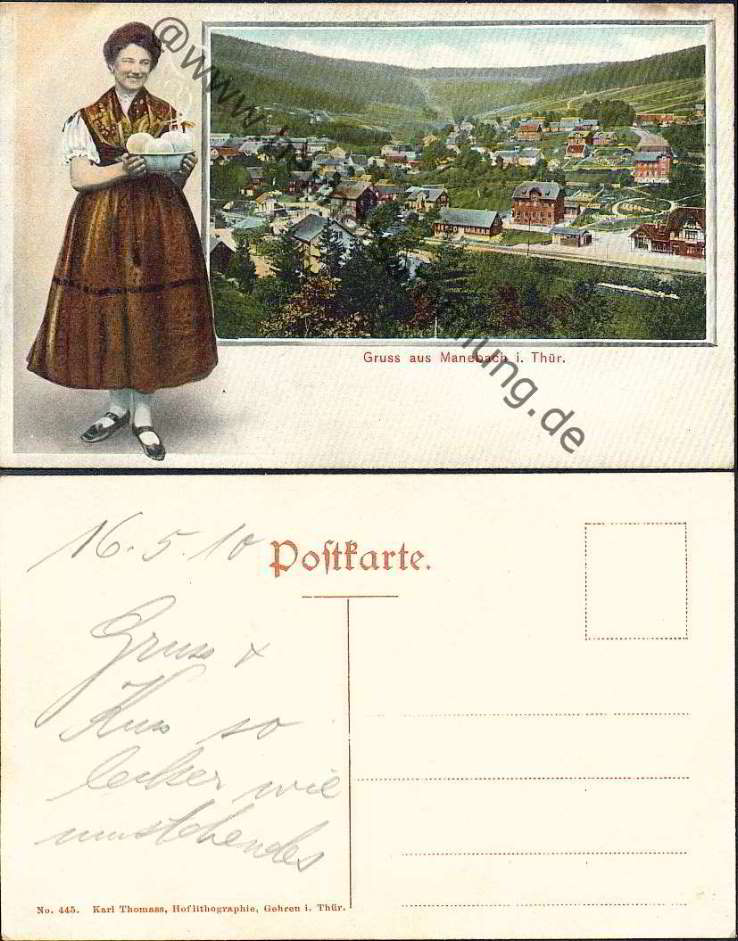 Gruss aus Manebach i. Thür.
16.5.10
Postkarte.
Gruss +
Kuss so
lecker wie
umstehendes
No. 445. Karl Thomass, Hoflithographie, Gehren i. Thür.